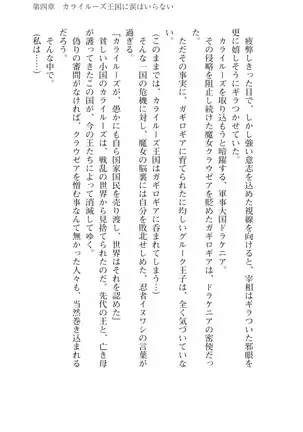 第四章 カライルーズ王国に涙はいらない
疲弊しきった目で、しかし強い意志を込めた視線を向けると、宰相はギラついた邪眼を
更に嬉しそうにギラつかせていた。
カライルーズを取り込もうと暗躍する、軍事大国ドラケニア。
その侵略を阻止し続けた魔女クラウゼアを貶めたガギロギアは、ドラケニアの密使だっ
た。
ただその事実に、ガギロギアに育てられたに均しいグルーク王子は、全く気づいていな
い。
(このままでは、カライルーズ王国はガギロギアに呑まれてしまう…)
そんな一国の危機に対し、魔女の脳裏には自分を敗北せしめた、忍者イヌワシの言葉が
過ぎる。
『カライルーズが、愚かにも自ら国家国民を売り渡し、世界はそれを認めた』
貧しい小国のカライルーズは、戦乱の世界から見捨てられたのだ。先代の王と、亡き母
が護ってきたこの国が、今の王たちによって消滅してゆく。
偽りの審問がなければ、クラウゼアを憎む事なんて無かった人々も、当然巻き込まれる
だろう。
そんな中で、
(私は……)